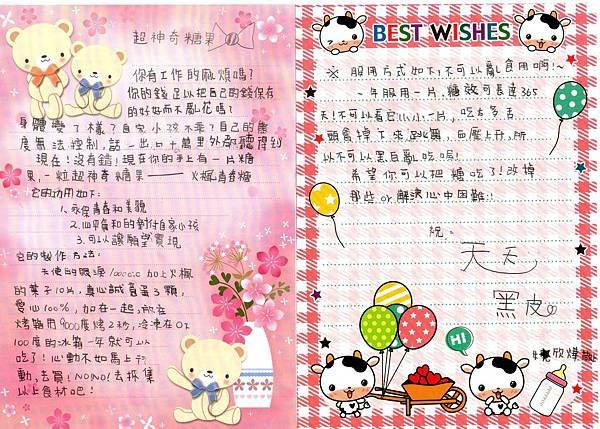 超神奇糖果
你有工作的麻煩嗎?
你的錢足以把自己的錢保存
的好好而不亂花嗎?
身體變了樣?自家小孩不乖?自己的
度無法控制,話一出口十萬里外都聽得到
現在!沒有錯!現在你的手上有一片糖
果,一粒超神奇糖果——火楓青春糖
它的功用如下:
1.永保青春和美貌
2.心平氣和的對付自家小孩
3.可以讓願望實現
它的製作方法:
天使的眼淚1000c.c加上火楓
的葉子10片,真心誠意蛋3顆,
愛心100%,加在一起,放在
烤箱用9000度烤2秒,冷凍在0下
100度的冰箱一年就可以
吃了!心動不如馬上行
動,去買!NO!NO!去採集
以上食材吧!
BEST WISHES
※服用方式如下,不可以亂食用啊!~
一年服用一片,糖效可長達365
天!不可以看它小小一片,吃太多舌
頭會掉下來跳舞,血壓上升,所
以不可以黑白亂吃呦!
希望你可以把糖吃了!改掉
那些or解決心中困難!!
祝:
天天
黑皮
HI
欣煒